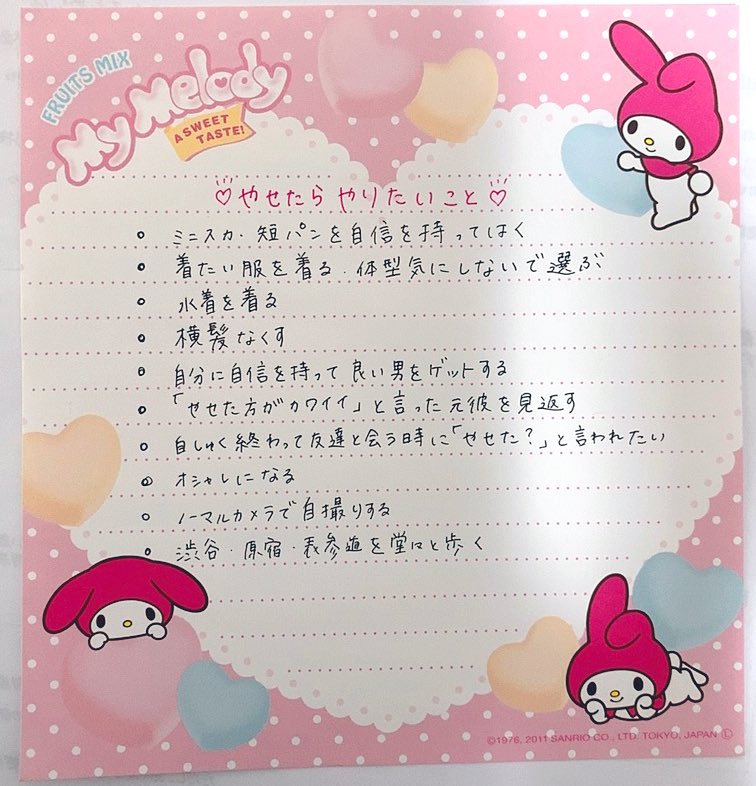 FRUITS MIX
My Melody
A SWEET
TASTE!
♡やせたらやりたいこと♡
ミニスカ・短パンを自信を持ってはく
着たい服を着る・体型気にしないで選ぶ
水着を着る
横髪なくす
自分に自信を持って良い男をゲットする
「やせた方がカワイイ」と言った元彼を見返す
自しゅく終わって友達と会う時に「やせた?」と言われたい
オシャレになる
ノーマルカメラで自撮りする
渋谷・原宿・表参道を堂々と歩く
©1976, 2011 SANRIO CO., LTD. TOKYO, JAPAN Ⓛ